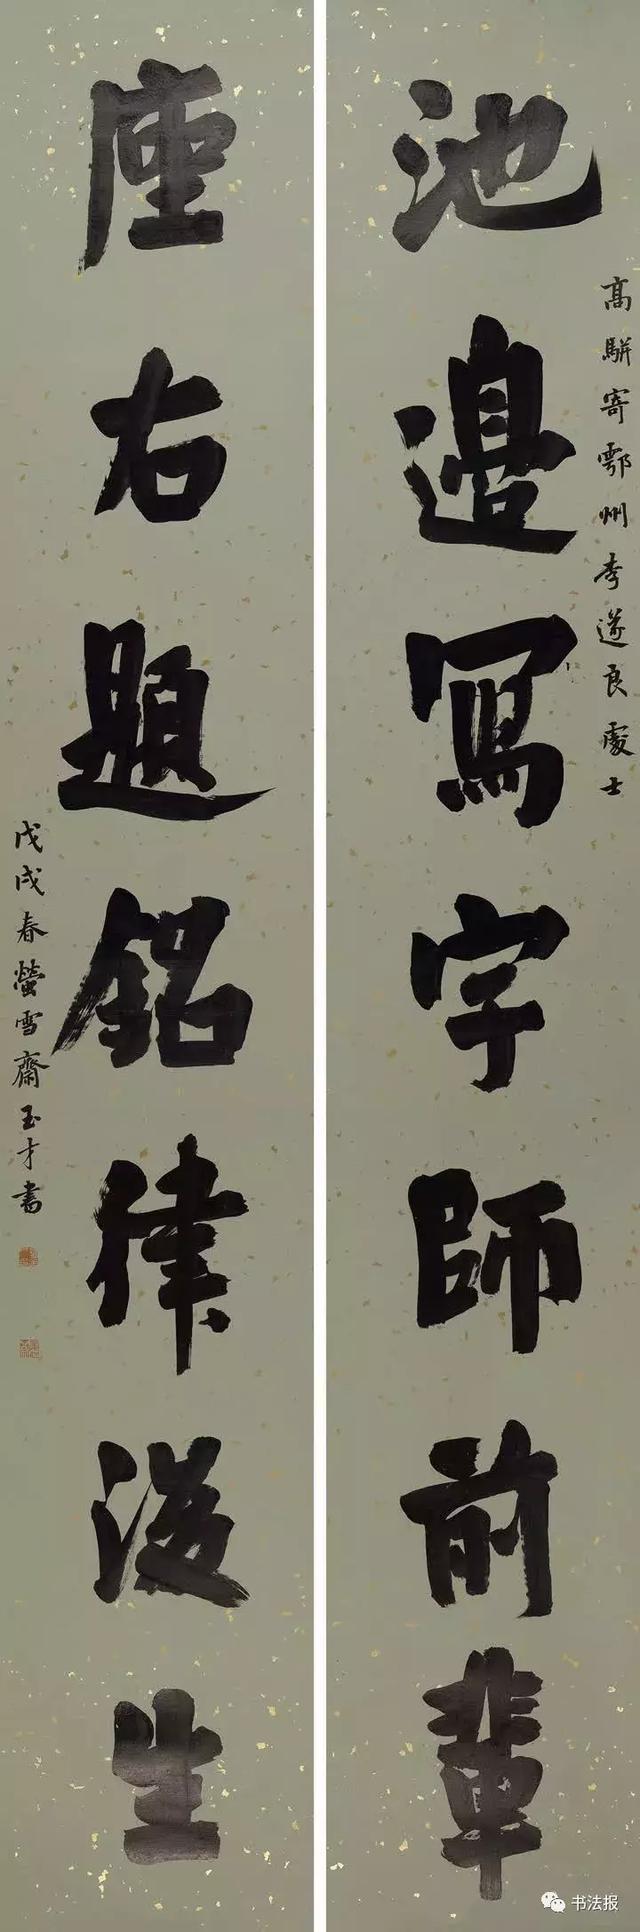 池邊寫字師前輩
高駢寄鄂州李遂良處士
座右題銘律後生
戊戌春螢雪齋玉才書
书法报